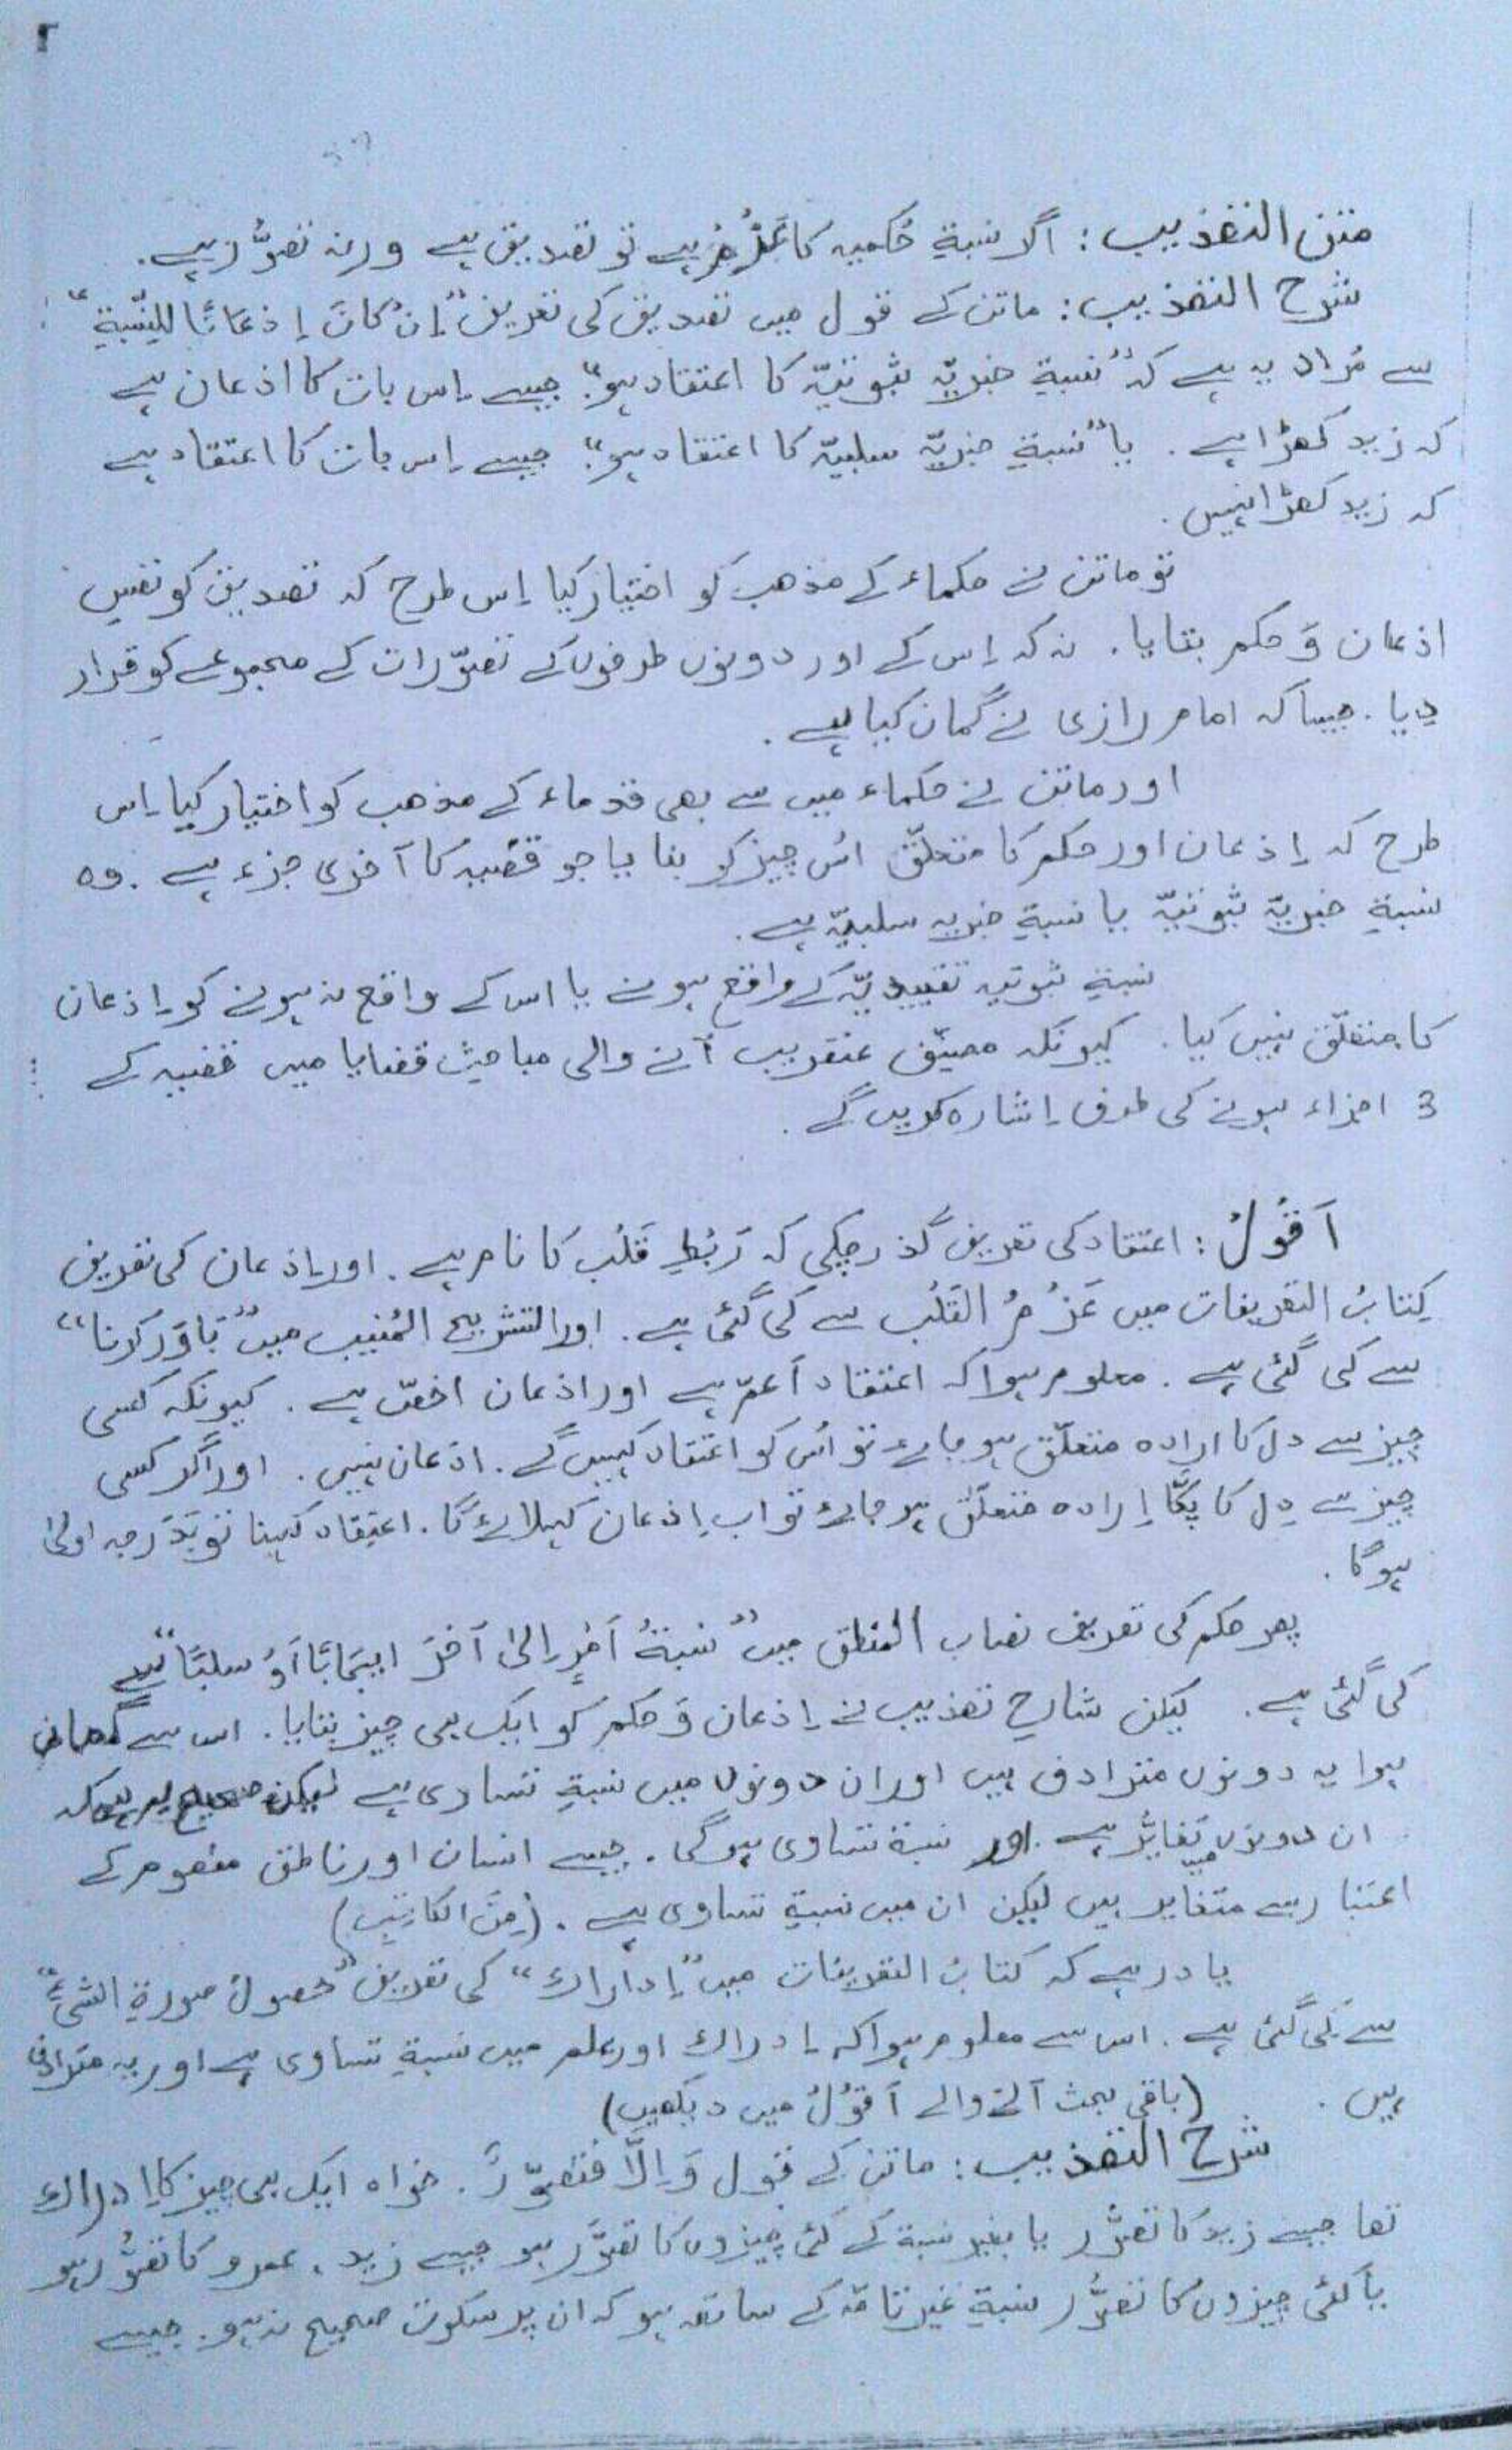 ٢
متن التھذیب: اگر نسبةِ حُکمیہ کا عَزْم ہے تو تصدیق ہے ورنہ تصوُّر ہے.
شرح التھذیب: ماتن کے قول میں تصدیق کی تعریف ”اِنْ کَانَ اِذعَانًا لِلنِّسْبَةِ“
سے مُراد یہ ہے کہ ”نسبةِ خبریّہ ثبوتیّہ کا اعتقاد ہو“. جیسے اِس بات کا اذعان ہے
کہ زید کھڑا ہے. یا ”نسبةِ خبریّہ سلبیّہ کا اعتقاد ہو“. جیسے اِس بات کا اعتقاد ہے
کہ زید کھڑا نہیں.
تو ماتن نے حکماء کے مذھب کو اختیار کیا اِس طرح کہ تصدیق کو نفسِ
اذعان وَ حکم بتایا. نہ کہ اِس کے اور دونوں طرفوں کے تصوّرات کے مجموعے کو قرار
دِیا. جیسا کہ امام رازی نے گمان کیا ہے.
اور ماتن نے حکماء میں سے بھی قدماء کے مذھب کو اختیار کیا اِس
طرح کہ اِذعان اور حکم کا متعلّق اُس چیز کو بتایا جو قضیہ کا آخری جزء ہے. وہ
نسبةِ خبریّہ ثبوتیّہ یا نسبةِ خبریہ سلبیّہ ہے.
نسبةِ ثبوتیہ تقییدیّہ کے واقع ہونے یا اس کے واقع نہ ہونے کو اِذعان
کا متعلّق نہیں کیا. کیونکہ مصنّف عنقریب آنے والی مباحثِ قضایا میں قضیہ کے
3 اجزاء ہونے کی طرف اِشارہ کریں گے.
اَقُوْلُ: اعتقاد کی تعریف گذر چکی کہ رَبْطِ قَلْب کا نام ہے. اور اِذعان کی تعریف
کِتابُ التعریفات میں عَزْمُ القَلْب سے کی گئی ہے. اور التشریح المُنیب میں ”بَاوَر کرنا“
سے کی گئی ہے. معلوم ہوا کہ اعتقاد اَعمّ ہے اور اذعان اخصّ ہے. کیونکہ کسی
چیز سے دل کا ارادہ متعلّق ہو جائے تو اُس کو اعتقاد کہیں گے. اذعان نہیں. اور اگر کسی
چیز سے دِل کا پکّا اِرادہ متعلّق ہو جائے تو اب اِذعان کہلائے گا. اعتِقاد کہنا تو بَدَرجہ اولیٰ
ہوگا.
پھر حکم کی تعریف نصاب المنطق میں ”نسبةُ اَمْرٍ اِلیٰ آخَرَ ایجَابًا اَوْ سلبًا“ سے
کی گئی ہے. لیکن شارحِ تھذیب نے اِذعان وَ حکم کو ایک ہی چیز بتایا. اس سے گمان
ہوا یہ دونوں مترادف ہیں اور ان دونوں میں نسبةِ تساوی ہے لیکن صحیح یہ ہے کہ
ان دونوں میں تغایُر ہے اور نسبة تساوی ہوگی. جیسے انسان اور ناطق مفھوم کے
اعتبار سے متغایر ہیں لیکن ان میں نسبةِ تساوی ہے. (مِنَ الکاتِبِ)
یاد رہے کہ کتابُ التعریفات میں ”اِدْراك“ کی تعریف ”حُصولُ صورةِ الشیْءِ“
سے کی گئی ہے. اس سے معلوم ہوا کہ اِدراك اور علم میں نسبةِ تساوی ہے اور یہ مترادف
ہیں. (باقی بحث آنے والے اَقُوْلُ میں دیکھیں)
شرح التھذیب: ماتن کے قول وَاِلَّا فَتَصَوُّرٌ. خواہ ایک ہی چیز کا اِدراك
تھا جیسے زید کا تصوُّر یا بغیر نسبة کے کئی چیزوں کا تصوُّر ہو جیسے زید، عمرو کا تصوُّر ہو
یا کئی چیزوں کا تصوُّر نسبةِ غیر تامّہ کے ساتھ ہو کہ ان پر سکوت صحیح نہ ہو. جیسے